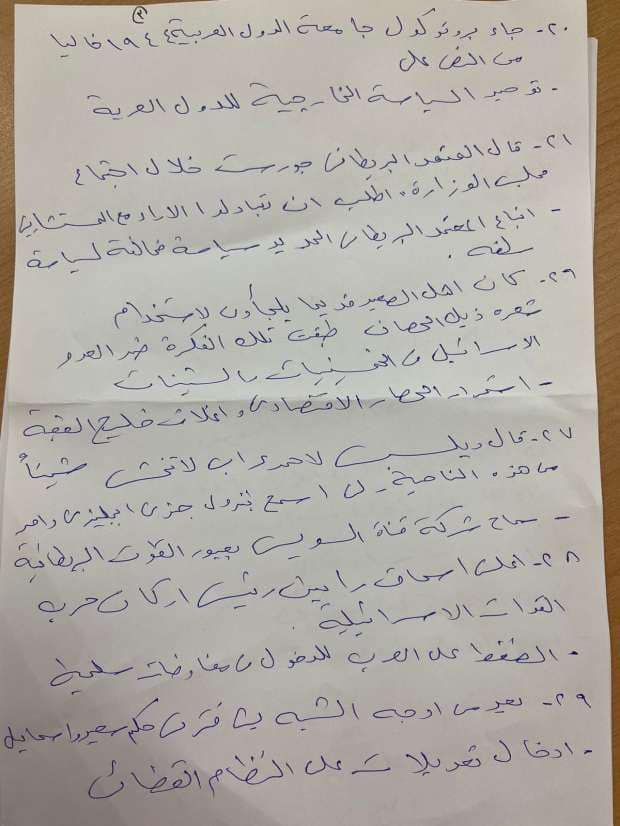 (٣)
٢٠- جاء بروتوكول جامعة الدول العربية ١٩٤٤ خاليا
من النص على
- توحيد السياسة الخارجية للدول العربية
٢١- قال المعتمد البريطاني جورست خلال اجتماع
مجلس الوزارة. اطلب ان تبادلوا الاراء مع المستشارين
- اتباع المعتمد البريطاني الجديد سياسة مخالفة لسياسة
سلفه.
٢٩- كان اهل الصعيد قديما يلجأون لاستخدام
شعرة ذيل الحصان طبقت تلك الفكرة ضد العدو
الاسرائيلي في الخمسينيات والستينات
- استمرار الحصار الاقتصادي واغلاق خليج العقبة
٢٧- قال ديلسبس لاحمد عرابى لا تخش شيئاً
من هذه الناحية - لن اسمح بنزول جندى انجليزى واحد
- سماح شركة قناة السويس بعبور القوات البريطانية
٢٨- اعلن اسحاق رابين رئيس اركان حرب
القوات الاسرائيلية.
- الضغط على العرب للدخول في مفاوضات سلمية
٢٩- يعد من اوجه الشبه بين فترتى حكم سعيد واسماعيل
- ادخال تعديلات على النظام القضائى